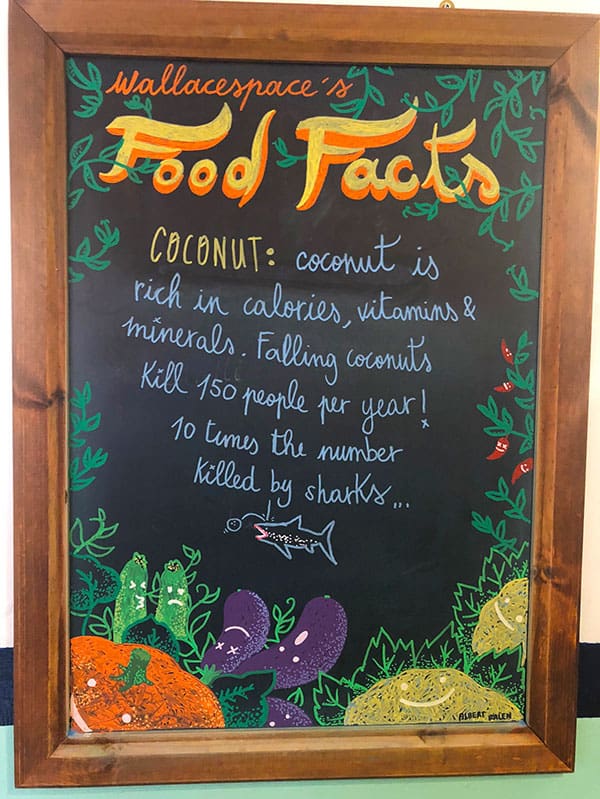 Wallacespace's
Food Facts
COCONUT: coconut is
rich in calories, vitamins &
minerals. Falling coconuts
Kill 150 people per year!
10 times the number
killed by sharks...